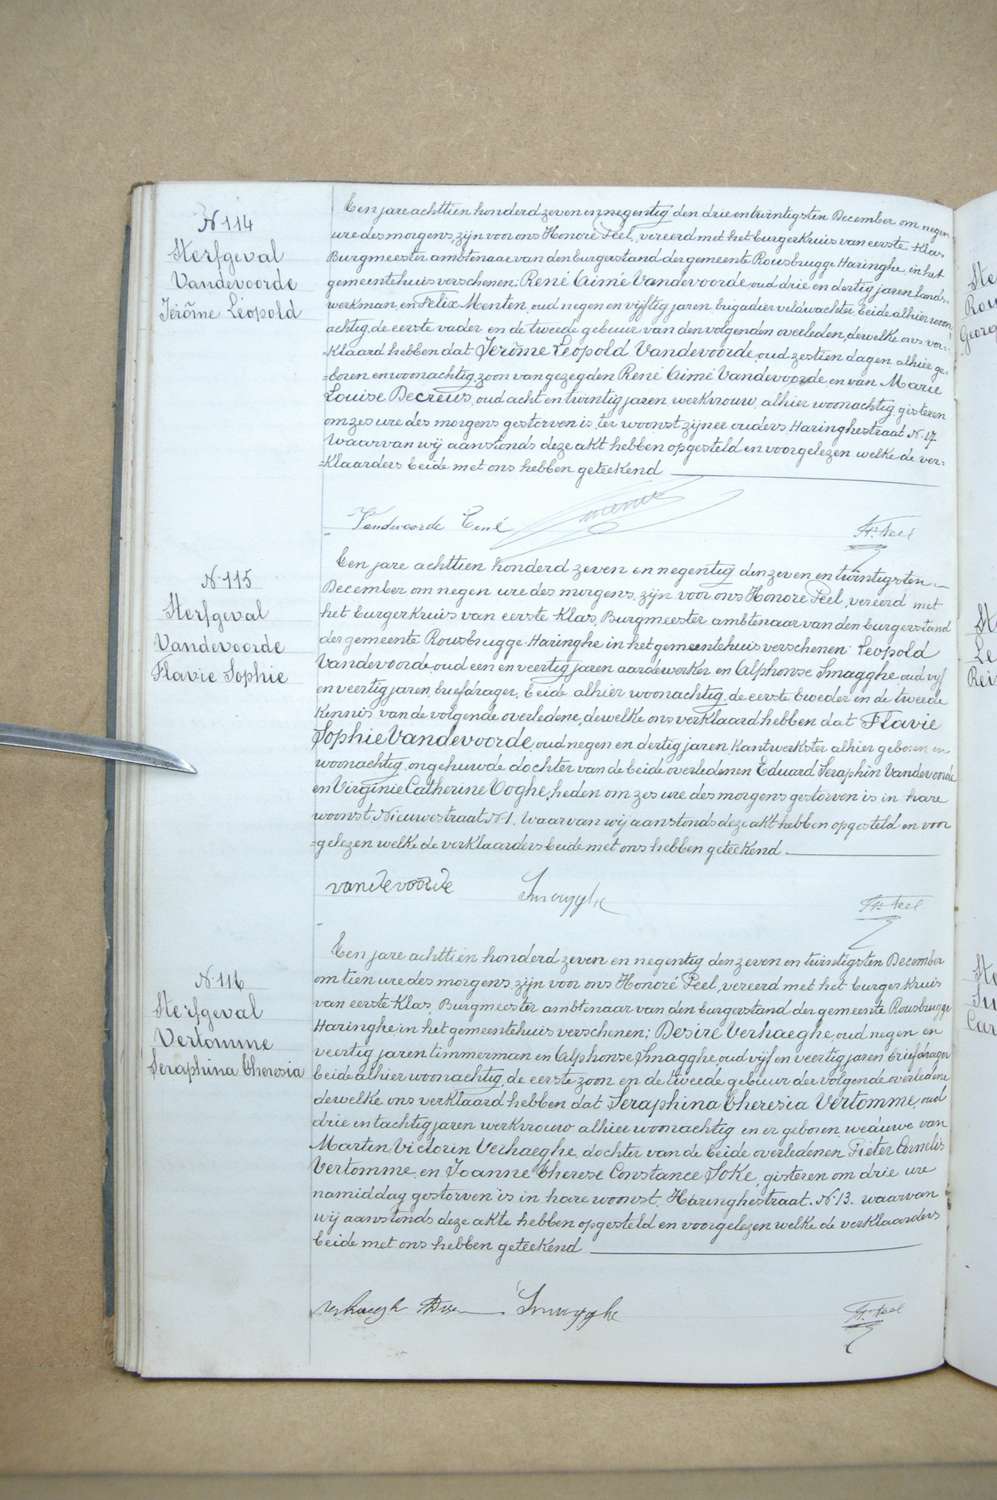 N. 114
Sterfgeval
Vandevoorde
Jérôme Léopold
Een jare achttien honderd zeven en negentig den drie en twintigsten December om negen
ure des morgens, zijn voor ons Honoré Peel, vereerd met het burgerkruis van eerste Klas,
Burgmeester, ambtenaar van den burgerstand der gemeente Rousbrugge Haringhe, in het
gemeentehuis verschenen: René Aimé Vandevoorde oud drie en dertig jaren lands-
werkman, en Felix Menten, oud negen en vijftig jaren brigadier veldwachter beide alhier woon-
achtig, de eerste vader en de tweede gebuur van den volgenden overleden, dewelke ons ver-
klaard hebben dat Jérôme Léopold Vandevoorde, oud zestien dagen alhier ge-
=boren en woonachtig, zoon van gezegden René Aimé Vandevoorde en van Marie
Louise Decreus, oud acht en twintig jaren werkvrouw, alhier woonachtig, gisteren
om zes ure des morgens gestorven is, ter woonst zijner ouders Haringhestraat N. 17.
Waarvan wij aanstonds deze akt hebben opgesteld en voorgelezen welke de ver-
=klaarders beide met ons hebben geteekend
Vandevoorde René
Hre Peel
N. 115
Sterfgeval
Vandevoorde
Flavie Sophie
Een jare achttien honderd zeven en negentig den zeven en twintigsten
December om negen ure des morgens, zijn voor ons Honoré Peel, vereerd met
het burgerkruis van eerste Klas, Burgmeester ambtenaar van den burgerstand
der gemeente Rousbrugge-Haringhe in het gemeentehuis verschenen: Leopold
Vandevoorde oud een en veertig jaren aardewerker en Alphonse Smagghe oud vijf
en veertig jaren, briefdrager, beide alhier woonachtig, de eerste broeder en de tweede
kennis van de volgende overledene, dewelke ons verklaard hebben dat Flavie
Sophie Vandevoorde oud negen en dertig jaren Kantwerkster alhier geboren en
woonachtig, ongehuwde dochter van de beide overledenen Eduard Seraphin Vandevoorde
en Virginie Catherine Ooghe, heden om zes ure des morgens gestorven is in hare
woonst Nieuwestraat N. 1. Waarvan wij aanstonds deze akt hebben opgesteld en voor
=gelezen welke de verklaarders beide met ons hebben geteekend
vandevoorde
Smagghe
Hre Peel
N. 116
Sterfgeval
Vertomme
Seraphina Theresia
Een jare achttien honderd zeven en negentig den zeven en twintigsten December
om tien ure des morgens zijn voor ons Honoré Peel, vereerd met het burgerkruis
van eerste Klas, Burgmeester ambtenaar van den burgerstand der gemeente Rousbrugge
Haringhe in het gemeentehuis verschenen: Desiré Verhaeghe, oud negen en
veertig jaren timmerman en Alphonse Smagghe oud vijf en veertig jaren briefdrager
beide alhier woonachtig, de eerste zoon en de tweede gebuur der volgende overledene
dewelke ons verklaard hebben dat Seraphina Theresia Vertomme, oud
drie en tachtig jaren werkvrouw alhier woonachtig en er geboren, weduwe van
Martin Victorin Verhaeghe, dochter van de beide overledenen Pieter Cornelis
Vertomme en Joanne Therese Constance Soke, gisteren om drie ure
namiddag gestorven is in hare woonst, Haringhestraat. N. 13. waarvan
wij aanstonds deze akte hebben opgesteld en voorgelezen welke de verklaarders
beide met ons hebben geteekend
Smagghe
Hre Peel